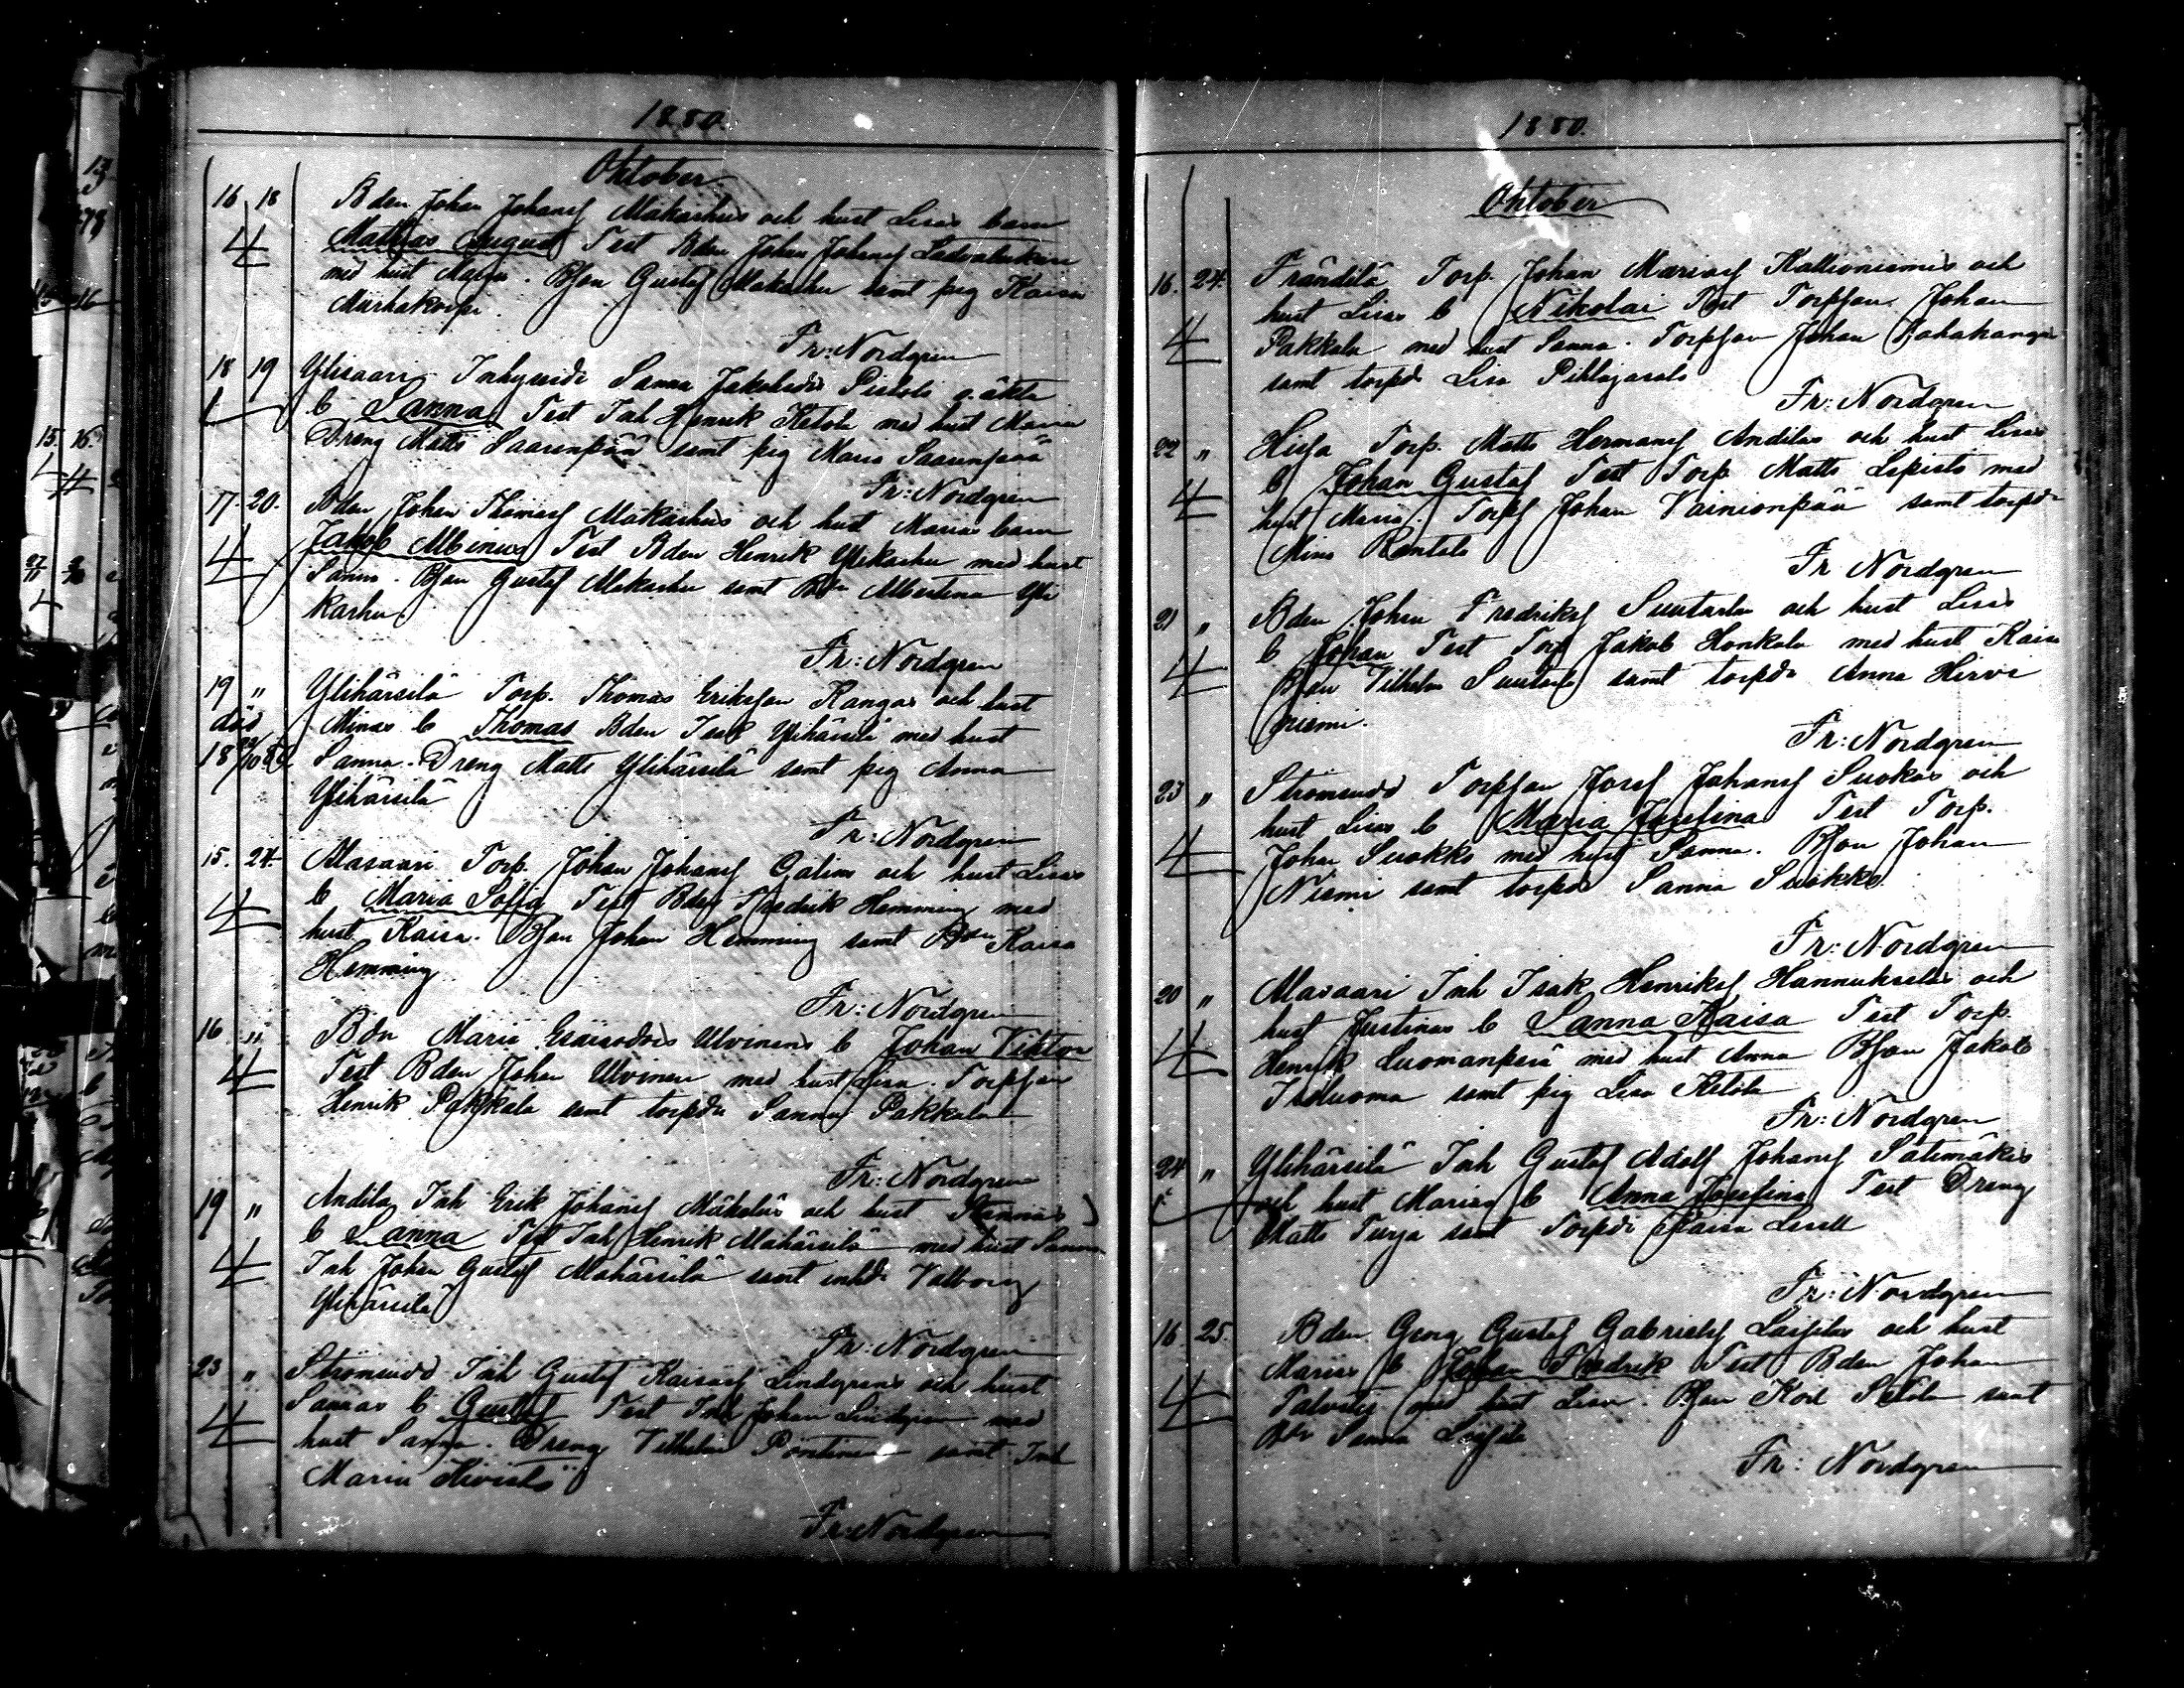 1880.
Oktober
16 18 Bden Johan Johansf Mäkarhus och hust Lisas barn
4 Mathias August Test Bden Johan Johansf
med hust Maria. Bson Gustaf Makarhu samt pig Kaisa
Markakorpi.
Fr: Nordgren
18 19 Ylisaari Inhysesdr Sanna Jakobsdr Pistols o. äkta
1 b Sanna Test Inh Henrik Ketola med hust Maria
Dreng Matts Saarenpää samt pig Maria Saarenpää
Fr: Nordgren
17. 20. Bden Johan Thomasf Mäkarhus och hust Marias barn
4 Jakob Albinus Test Bden Henrik Ylikarhu med hust
Sanna. Bson Gustaf Makarhu samt Bdr Albertina Yli
karhu
Fr: Nordgren
19 " Ylihärsilä Torp. Thomas Erikson Kangas och hust
död Minas b Thomas Bden Isak Ylihärsilä med hust
Sanna. Dreng Matts Ylihärsilä samt pig Anna
Ylihärsilä
Fr: Nordgren
15. 24. Alasaari Torp. Johan Johansf och hust Lisas
4 b Maria Sofia Test Bden Fredrik Hemming med
hust Kaisa. Bson Johan Hemming samt Bdn Kaisa
Hemming
Fr: Nordgren
16 " Bdn Maria Ulvinens b Johan Viktor
4 Test Bden Johan Ulvinen med hust Lisa. Torpson
Henrik Pakkala samt torpdr Sanna Pakkala
Fr: Nordgren
19 " Andila Inh Erik Johansf Mäkeläs och hust Sannas
4 b Sanna Test Inh Henrik Makärsilä med hust Sanna
Inh Johan Gustaf Makärsilä samt inhdr Valborg
Ylihärsilä
Fr: Nordgren
23 " Strömsund Inh Gustaf Kaisasf Lindgrens och hust
4 Sannas b Gustaf Test Inh Johan Lindgren med
hust Sanna. Dreng Vilhelm Pöntinen samt Inh
Maria Kivistö
Fr: Nordgren
1880.
Oktober
16. 24. Frändilä Torp. Johan Mariasf Kallioniemis och
4 hust Lisas b Nikolai Test Torpson Johan
Pakkala med hust Sanna. Torpson Johan
samt torpd Lisa
Fr: Nordgren
22 " Hirja Torp. Matts Hermansf Andilas och hust Lisas
4 b Johan Gustaf Test Torp Matts Lepistö med
hust Maria. Torpf Johan Vainionpää samt torpdr
Mina Rantala
Fr Nordgren
21 " Bden Johan Fredriksf Suutarla och hust Lisas
4 b Johan Test Torp Jakob Honkala med hust Kaisa
Bson Vilhelm Suutarla samt torpdr Anna Hirvi
niemi.
Fr: Nordgren
23 " Strömsund Torpson Josef Johansf Suokas och
4 hust Lisas b Maria Josefina Test Torp.
Johan Suokko med hust Sanna. Bson Johan
Niemi samt torpdr Sanna Suokko.
Fr: Nordgren
20 " Alasaari Inh Isak Henriksf Hannukselas och
4 hust Justinas b Sanna Kaisa Test Torp.
Henrik Luomanperä med hust Anna Bson Jakob
Isoluoma samt pig Lisa Ketola
Fr: Nordgren
24 " Ylihärsilä Inh Gustaf Adolf Johansf Sätimäkis
och hust Marias b Anna Josefina Test Dreng
Matts Turja samt Torpdr Kaisa
Fr: Nordgren
16 25. Bden Georg Gustaf Gabrielsf Laisilas och hust
4 Marias b Johan Fredrik Test Bden Johan
Talvitie med hust Lisa. Bson samt
Bdr Sanna
Fr: Nordgren